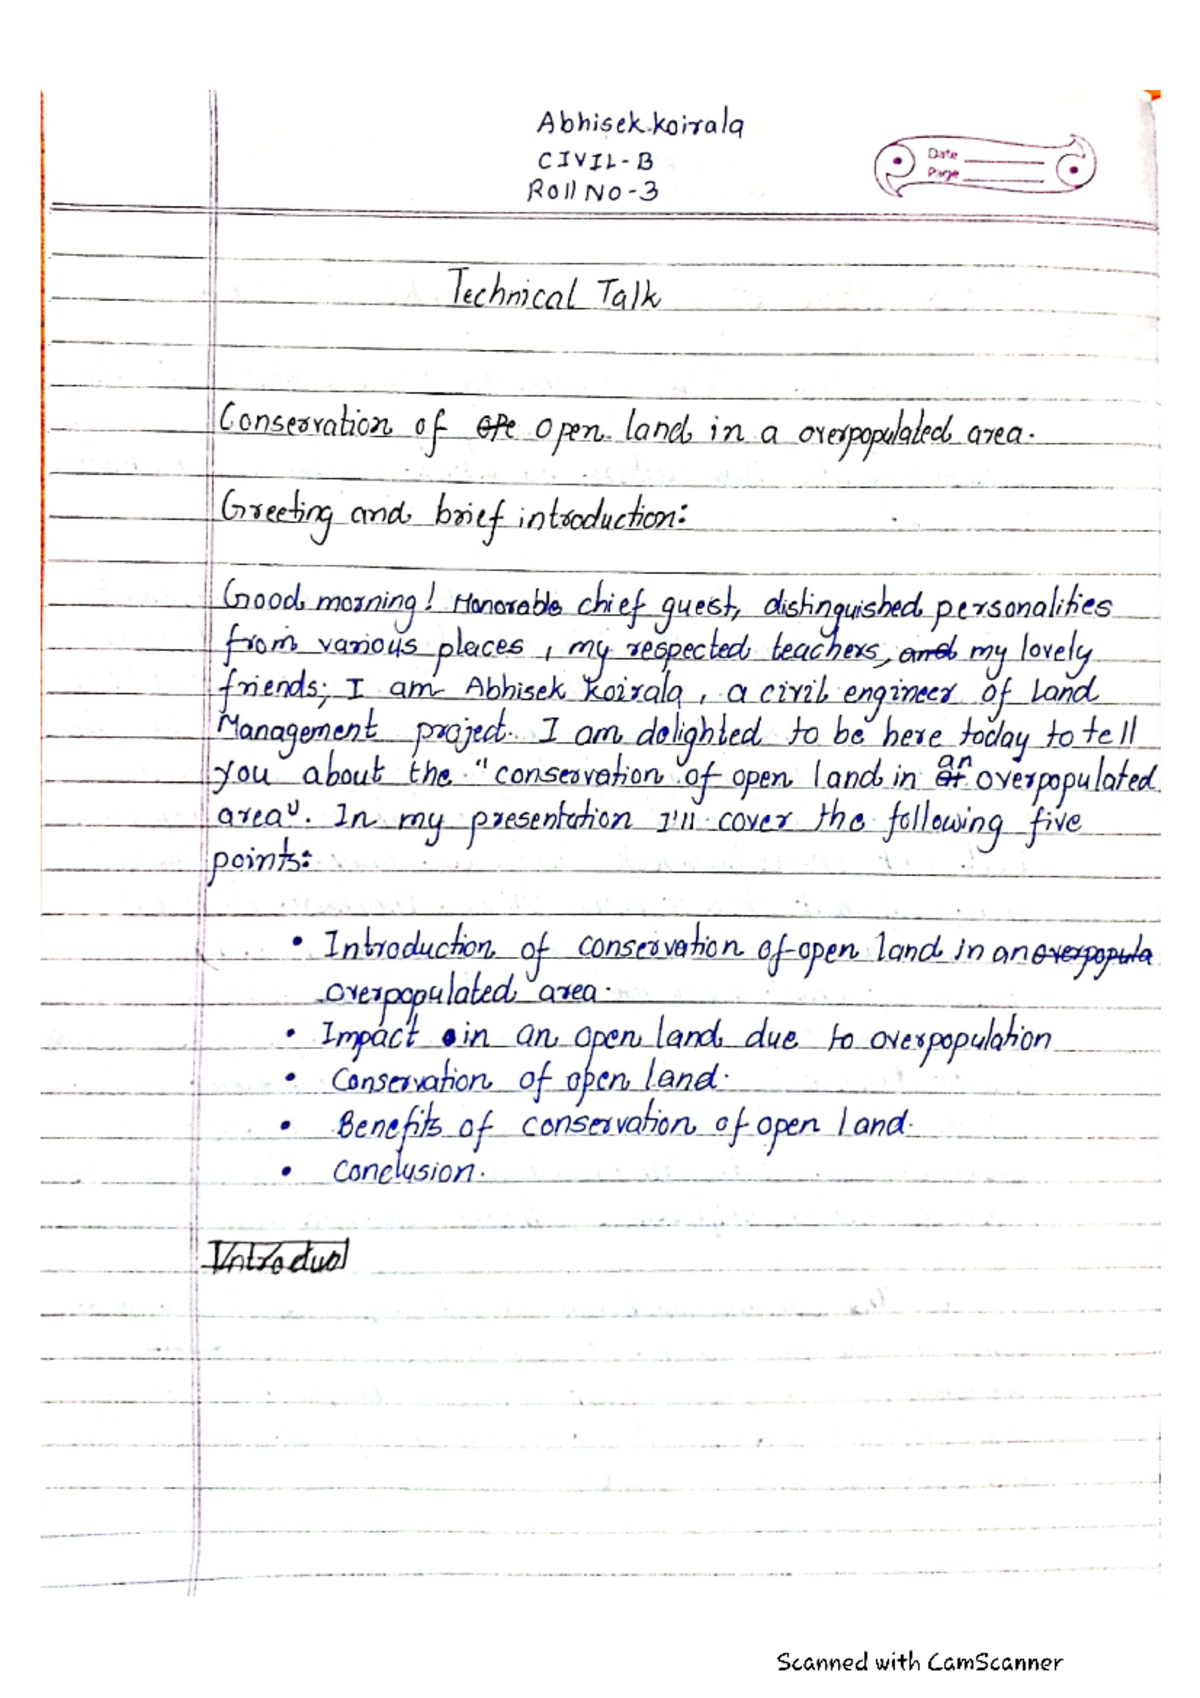 Abhisek.Koirala
CIVIL-B
Roll No-3
Date
Page
Technical Talk
Conservation of ope open land in a overpopulated area.
Greeting and brief introduction:
Good morning! Honorable chief guest, distinguished personalities
from various places, my respected teachers, and my lovely
friends; I am Abhisek Koirala, a civil engineer of Land
Management project. I am delighted to be here today to tell
you about the "conservation of open land in an overpopulated
area". In my presentation I'll cover the following five
points:
• Introduction of conservation of open land in an overpopula
overpopulated area.
• Impact in an open land due to overpopulation
• Conservation of open land.
• Benefits of conservation of open land.
• Conclusion.
Introdu
Scanned with CamScanner